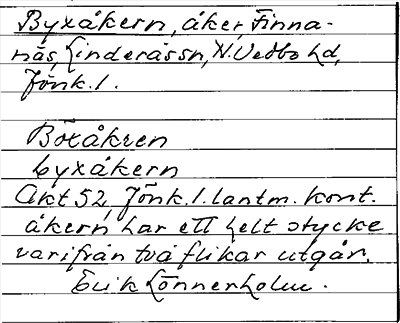 Byxåkern, åker, Finna-
näs, Linderåssn, N. Vedbo hd,
Jönk. l.
Böxåkren
byxåkern
Akt 52, Jönk. l. lantm. kont.
åkern har ett helt stycke
varifrån två flikar utgår.
Erik Lönnerholm.